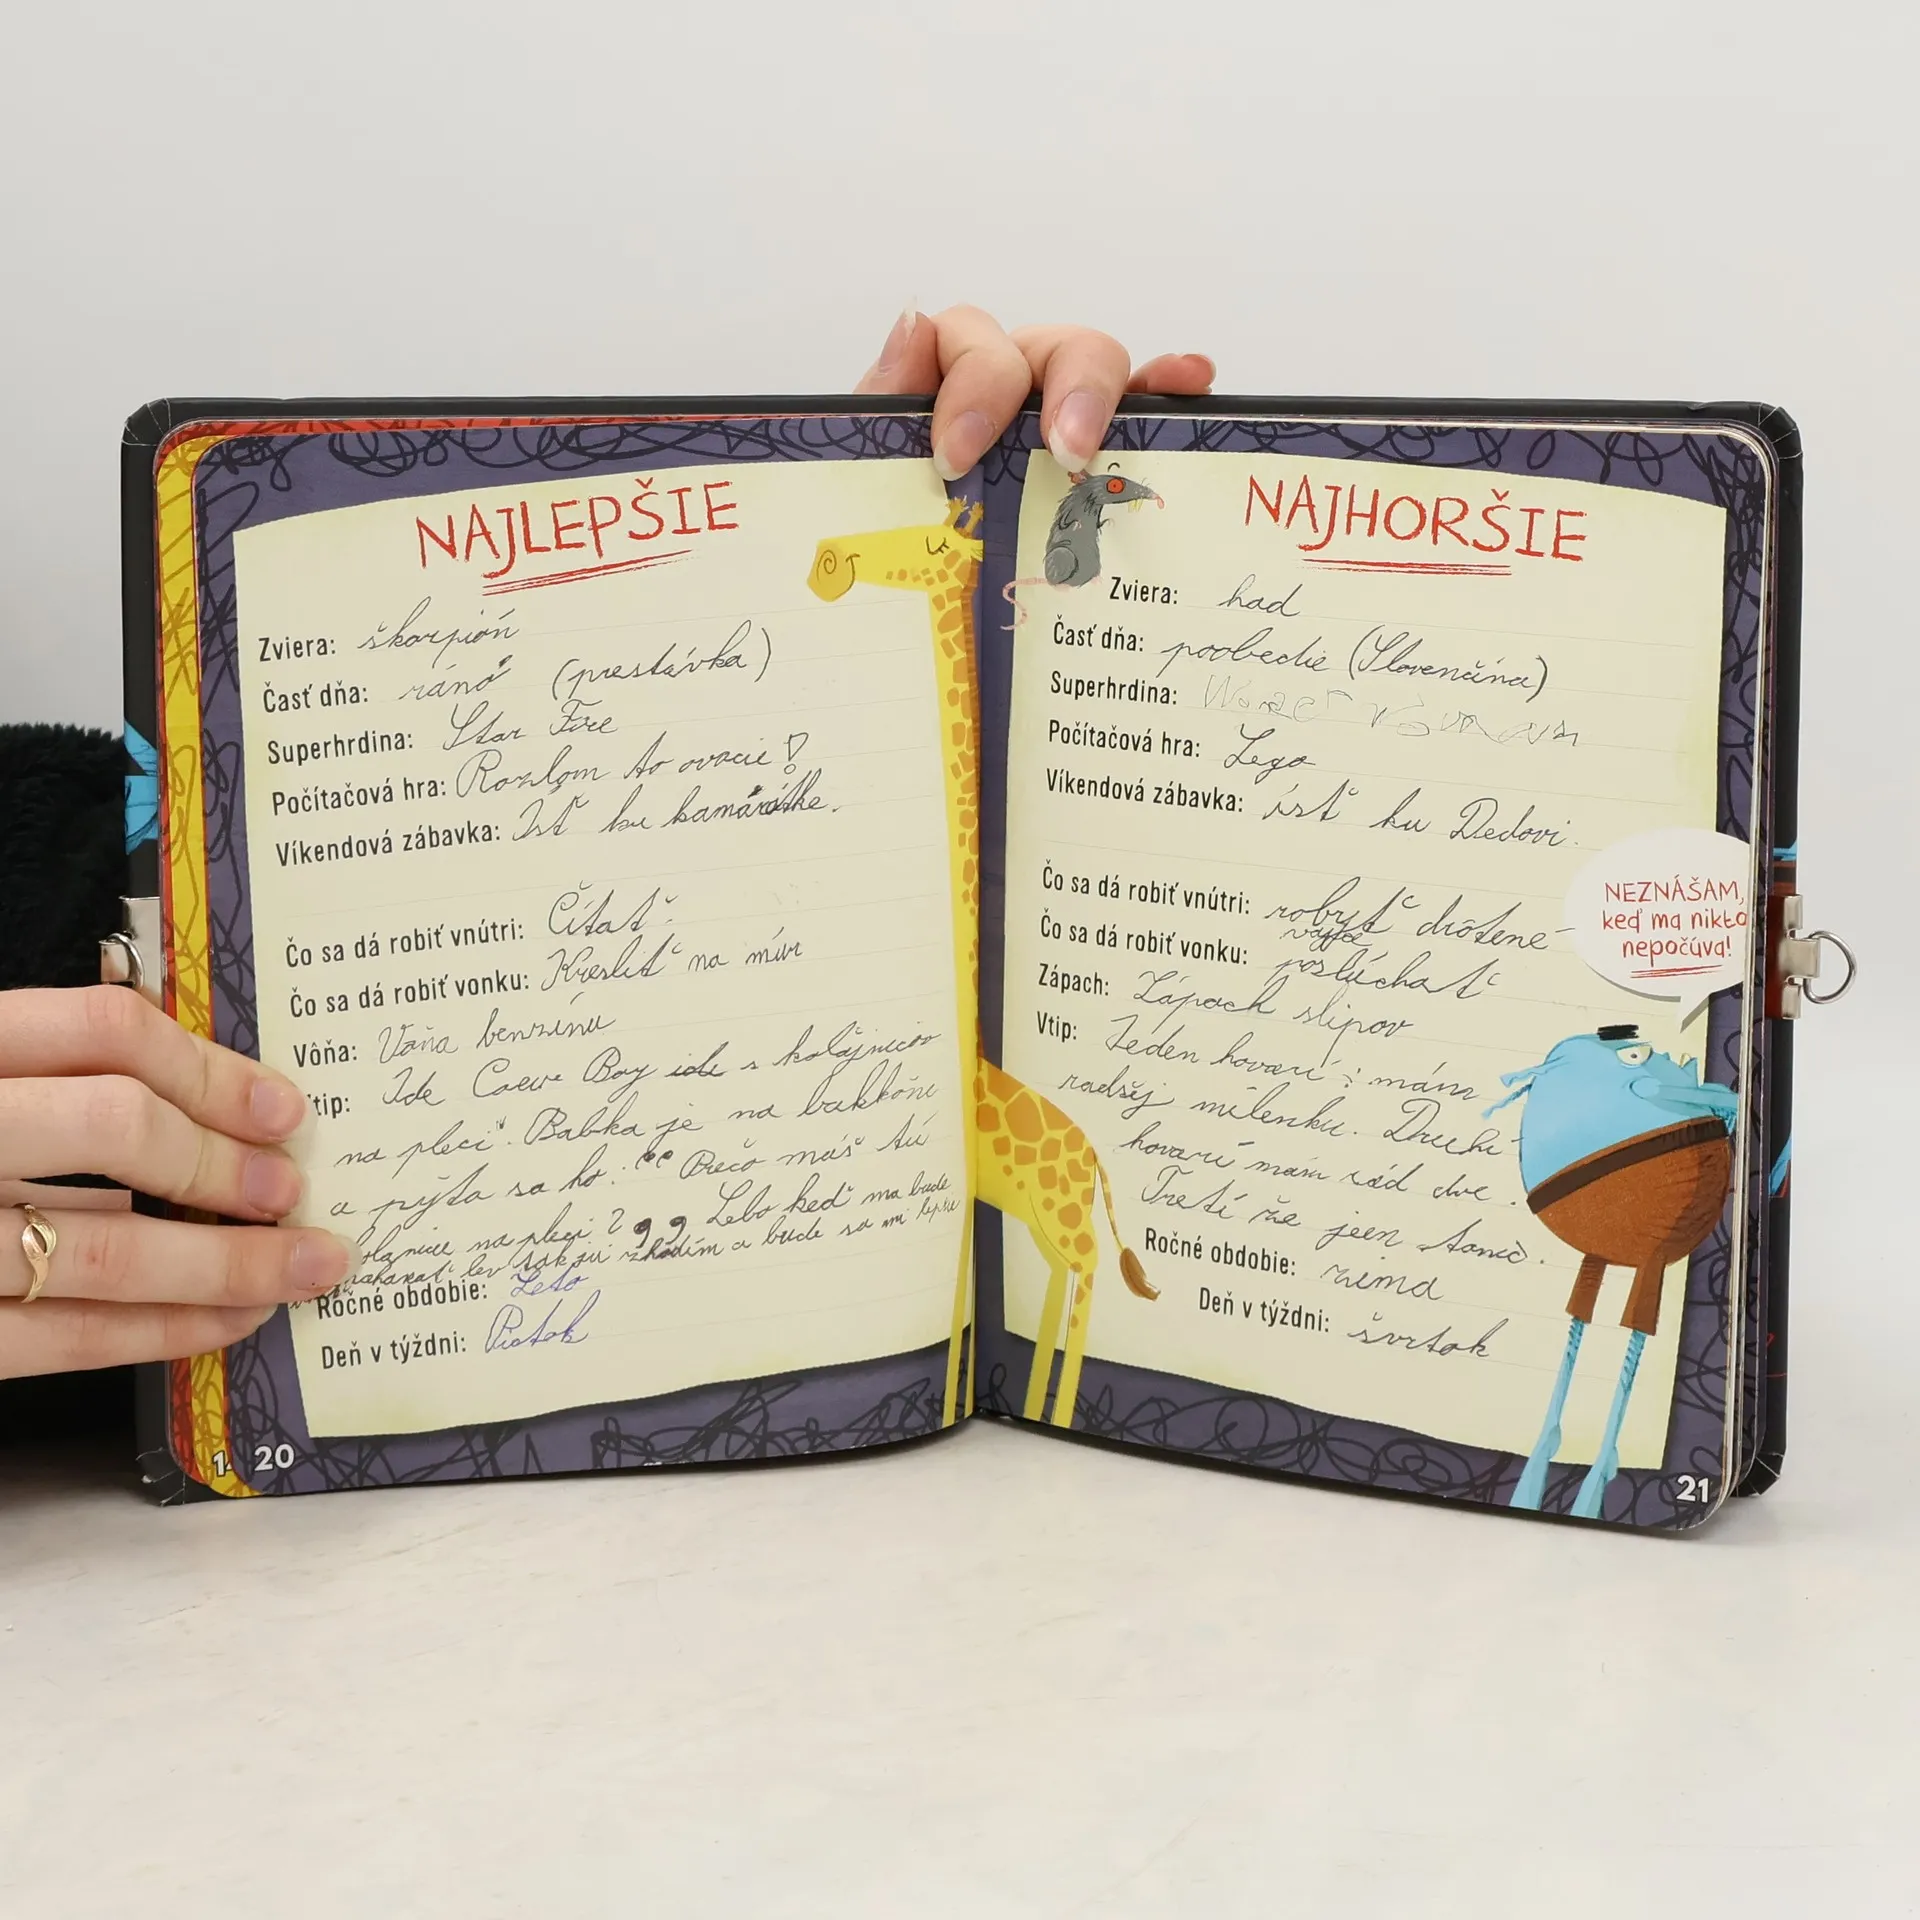 NAJLEPŠIE
Zviera: škorpión
Časť dňa: ráno (prestávka)
Superhrdina: Star Fire
Počítačová hra: Rozlom to ovocie!
Víkendová zábavka: Isť ku kamarátke.
Čo sa dá robiť vnútri: Čítať.
Čo sa dá robiť vonku: Kresliť na múr
Vôňa: Vôňa benzínu
tip: Ide Boy ide s kolajnicov
na pleci. Babka je na balkóne
a pýta sa ho: Prečo máš tú
na pleci? Lebo keď ma bude
lev tak ju zhodím a bude sa mi lepšie
Ročné obdobie: Leto
Deň v týždni: Piatok
14 20
NAJHORŠIE
Zviera: had
Časť dňa: poobedie (Slovenčina)
Superhrdina:
Počítačová hra: Lego
Víkendová zábavka: ísť ku Dedovi.
Čo sa dá robiť vnútri: robyť drôtené
vajce
Čo sa dá robiť vonku: poslúchať
Zápach: Zápach slipov
Vtip: Jeden hovorí: mám
radšej milenku. Druhí
hovorí mám rád dve.
Tretí že jeen tonic.
Ročné obdobie: zima
Deň v týždni: švrtok
NEZNÁŠAM,
keď ma nikto
nepočúva!
21